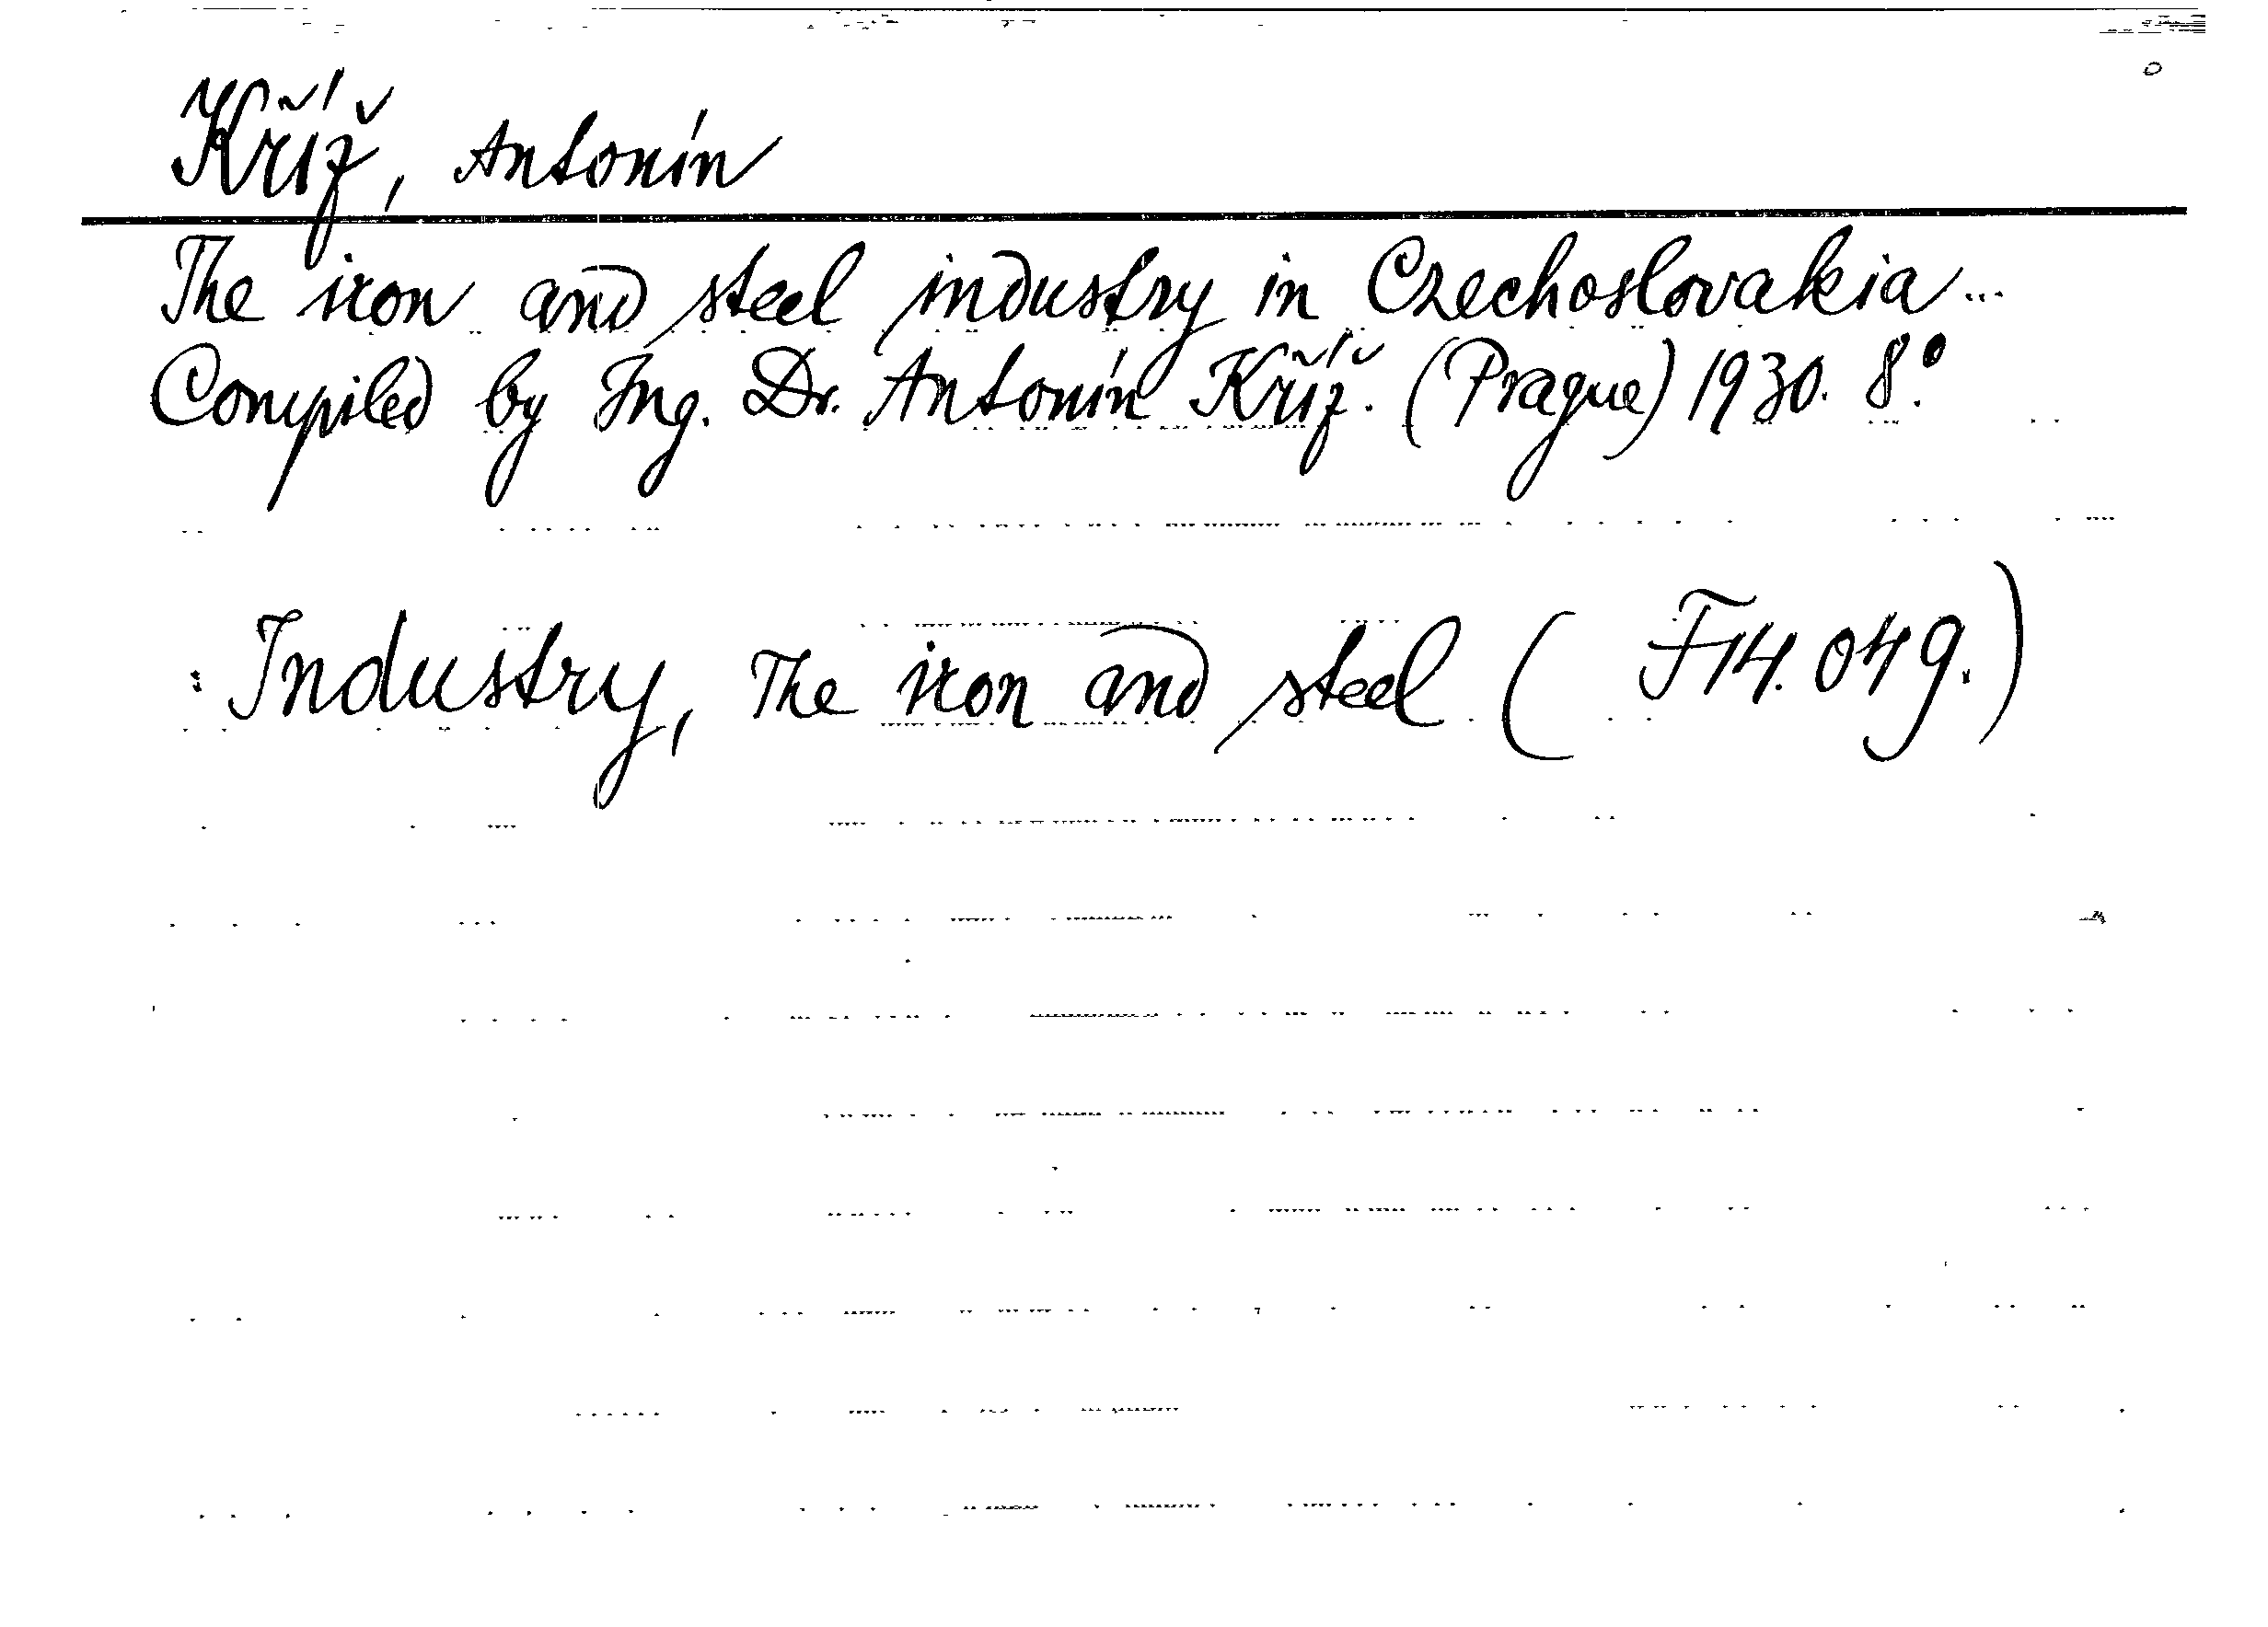 Kříž, Antonín
The iron and steel industry in Czechoslovakia...
Compiled by Ing. Dr. Antonín Kříž. (Prague) 1930. 8.°
: Industry, The iron and steel (F14.049.)